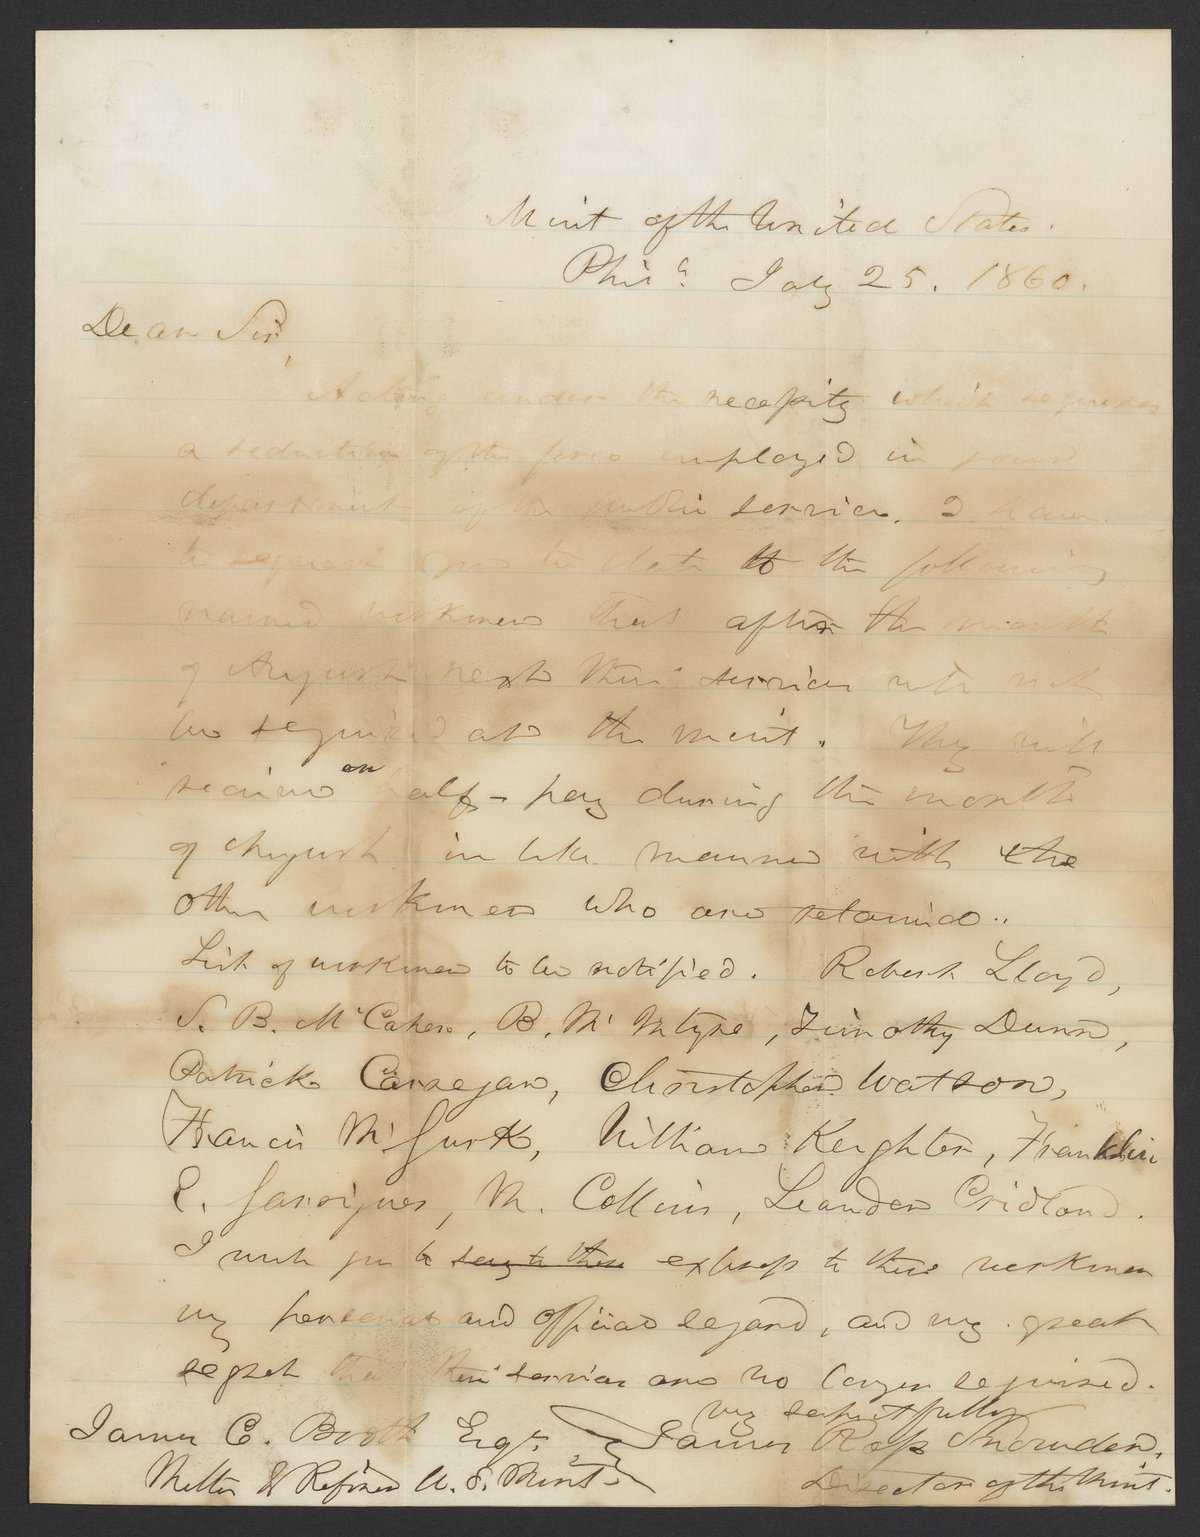 Mint of the United States.
Phila. July 25. 1860.
Dear Sir,
Acting under the necessity which requires
a reduction of the force employed in your
department of the public service. I have
to request you to state to the following
named workmen that after the month
of August next their services will not
be required at the mint. They will
receive on half-pay during the month
of August in like manner with the
other workmen who are retained..
List of workmen to be notified. Robert Lloyd,
S. B. McCahen, B. Mc Intyre, Timothy Dunn,
Patrick Carnegan, Christopher Watson,
Francis McGurk, William Keighter, Franklin
E. Garrigues, M. Collins, Leander Cridland.
I wish you to say to these express to these workmen
my personal and official regard, and my great
regret that their services are no longer required.
very respectfully
James C. Booth Esqr. James Ross Snowden,
Melter & Refiner U. S. Mint. Director of the Mint.